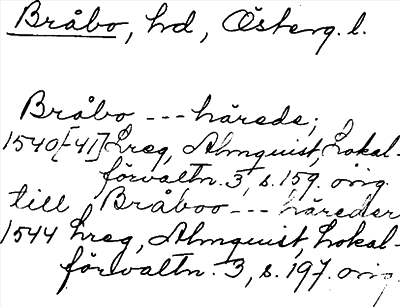 Bråbo, hd, Österg. l.
Bråbo --- härede;
1540[-41] Lreg, Almquist, Lokal-
förvaltn. 3, s. 159. orig.
till Bråboo --- häreder
1544 Lreg, Almquist, Lokal-
förvaltn. 3, s. 197. orig.